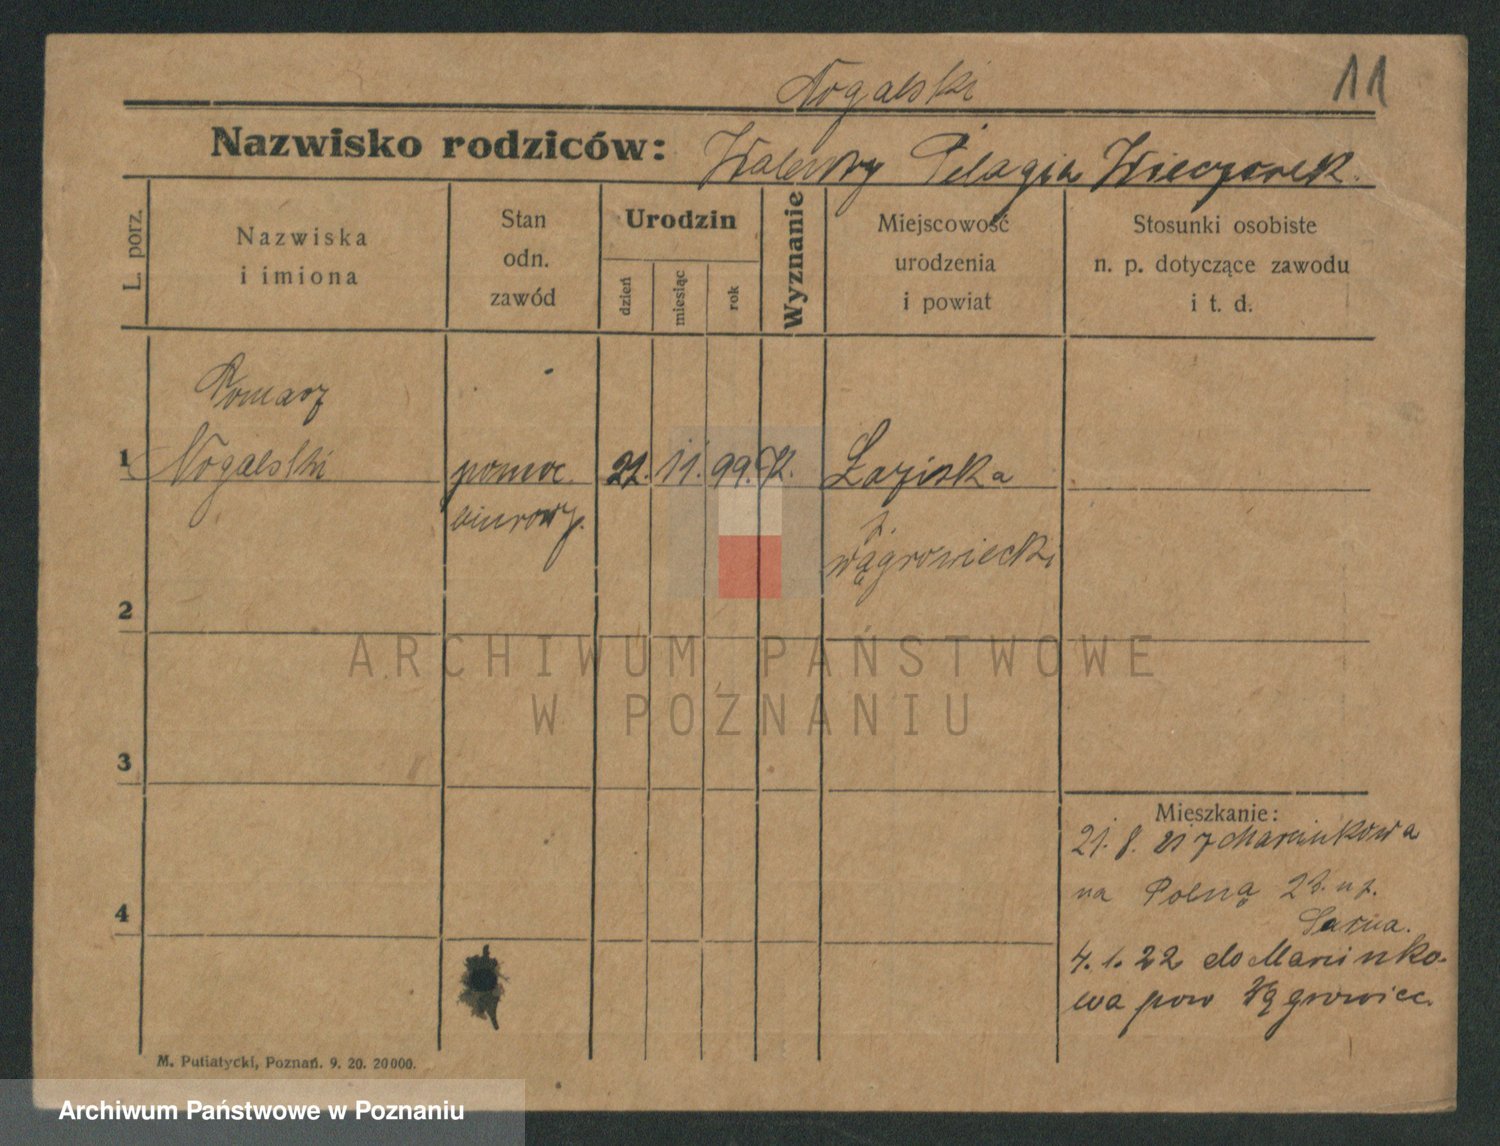 Nogalski
11
Nazwisko rodziców: Walenty Pelagia Wieczorek.
L. porz.
Nazwiska
i imiona
Stan
odn.
zawód
Urodzin
dzień
miesiąc
rok
Wyznanie
Miejscowość
urodzenia
i powiat
Stosunki osobiste
n. p. dotyczące zawodu
i t. d.
1
Nogalski
pomoc.
biurowy.
11. 99. K.
Łaziska
p.
wągrowiecki
2
3
4
Mieszkanie:
21. 8. 21 z Marcinkowa
na Polną 23.
4. 1. 22 do Marcinko-
wa pow Wągrowiec.
M. Putiatycki, Poznań. 9. 20. 20000.
ARCHIWUM PAŃSTWOWE
W POZNANIU
Archiwum Państwowe w Poznaniu